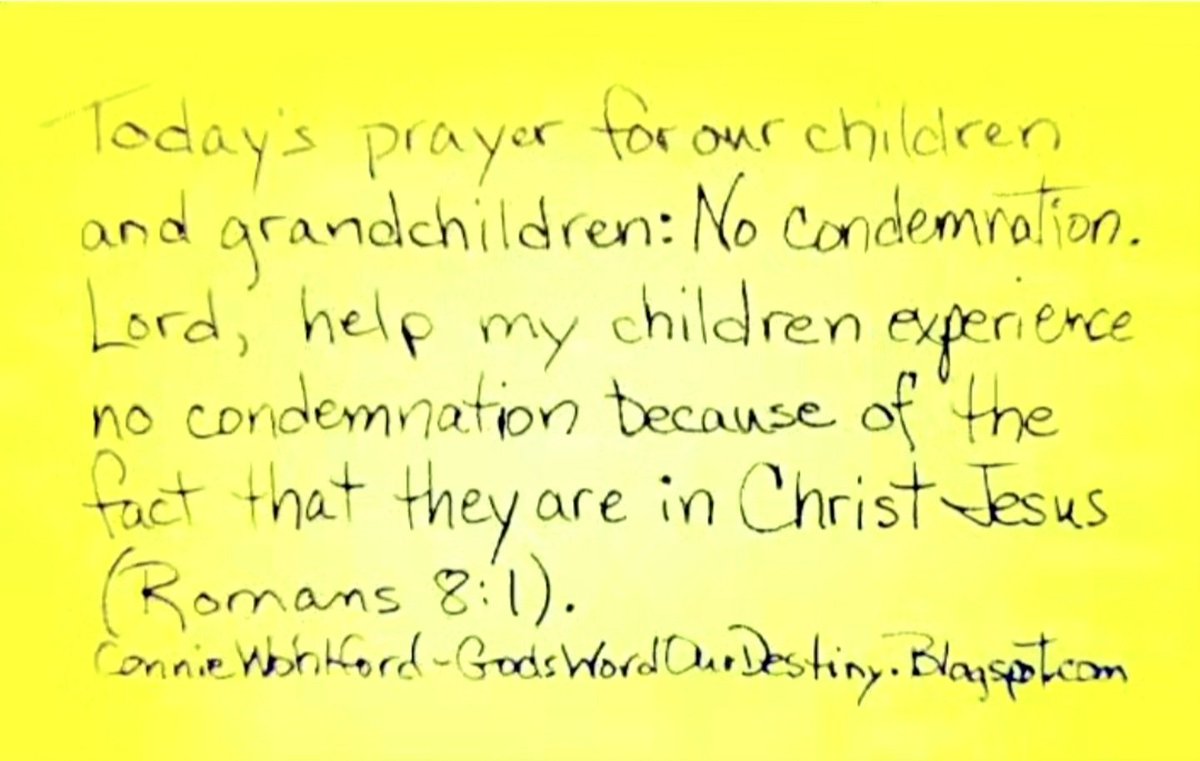 Today's prayer for our children
and grandchildren: No Condemnation.
Lord, help my children experience
no condemnation because of the
fact that they are in Christ Jesus
(Romans 8:1).
Connie Wohlford-GodsWordOurDestiny.Blogspot.com